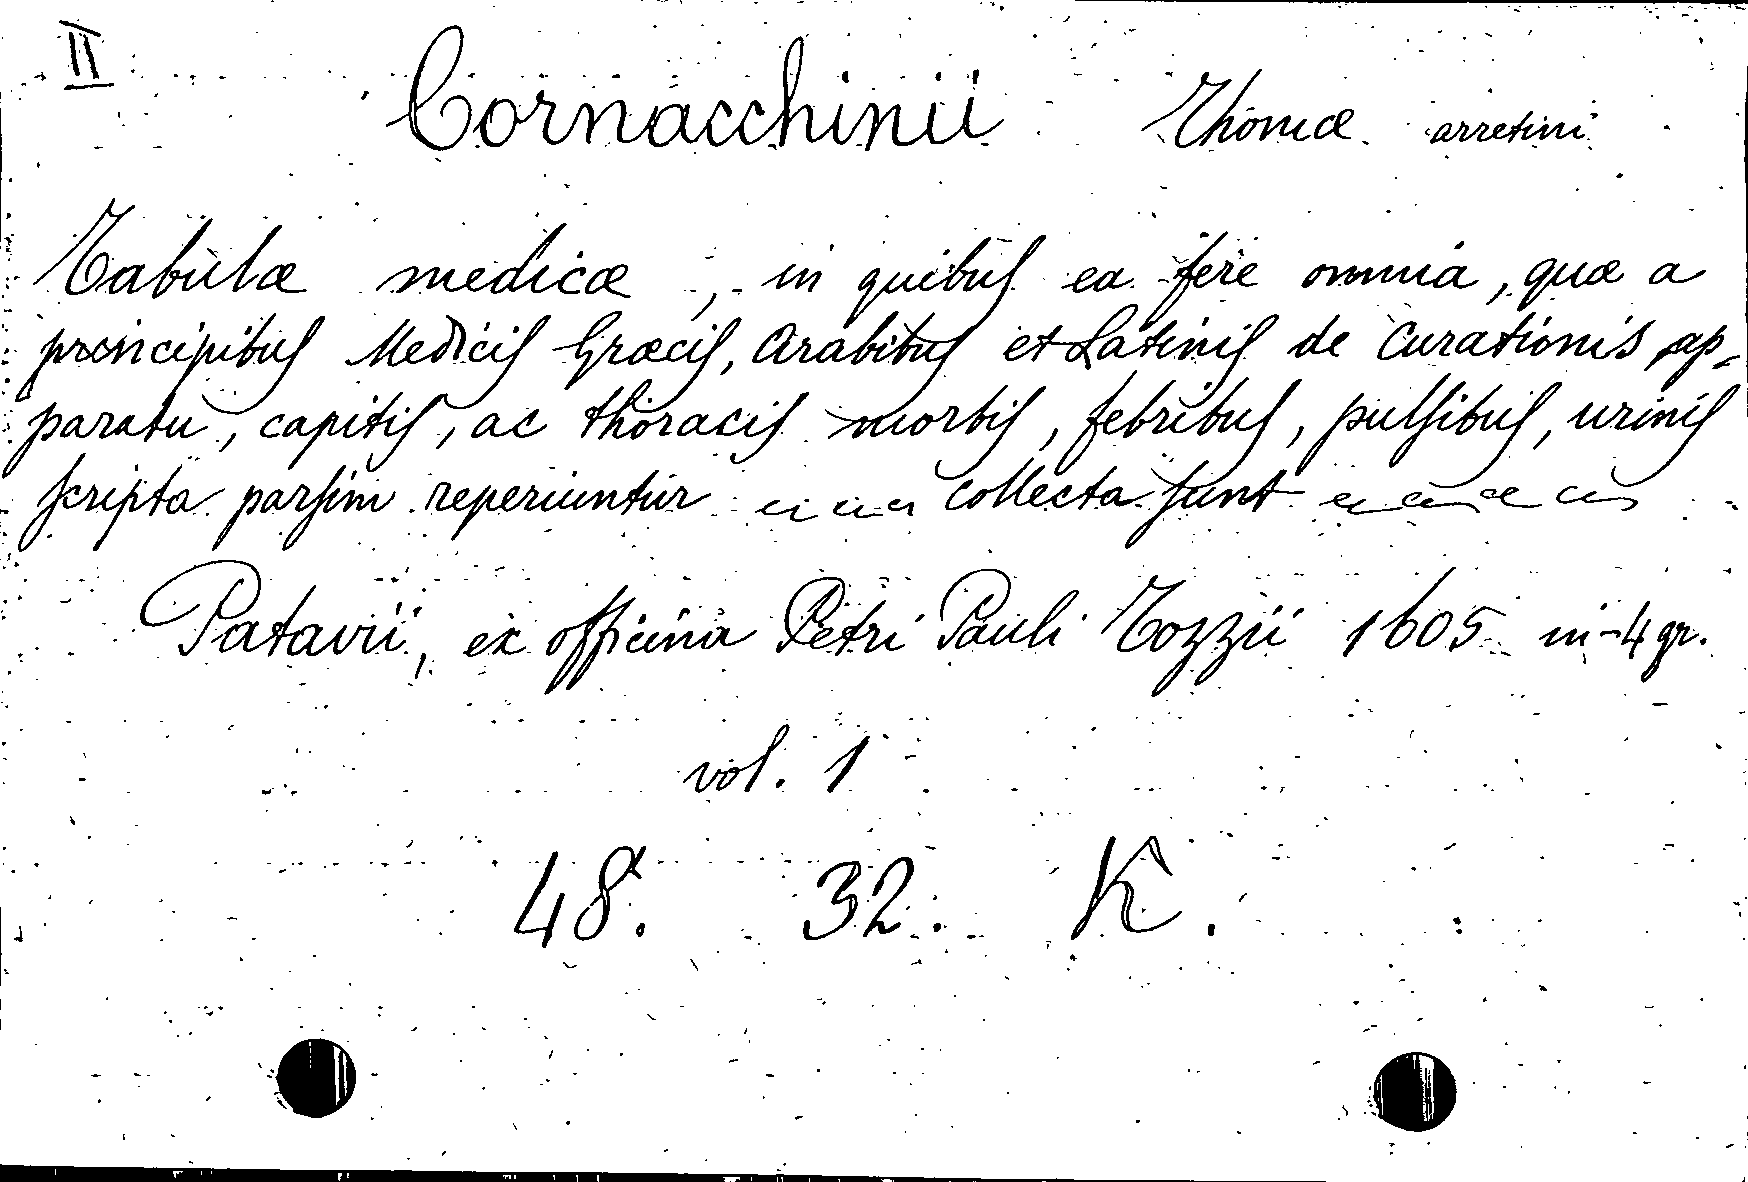 II
Cornacchinii Thomæ arretini
Tabulæ medicæ, in quibus ea fere omnia, quæ a
principibus Medicis Græcis, Arabibus et Latinis de Curationis ap-
paratu, capitis, ac thoracis morbis, febribus, pulsibus, urinis
scripta parsim reperiuntur collecta sunt
Patavii, ex officina Petri Pauli Tozzii 1605 in-4 gr.
vol. 1
48. 32. K.